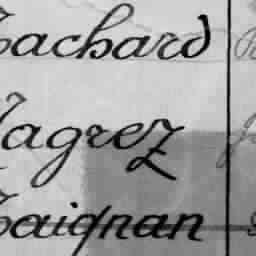 Lachard
Lagrez
Laignan